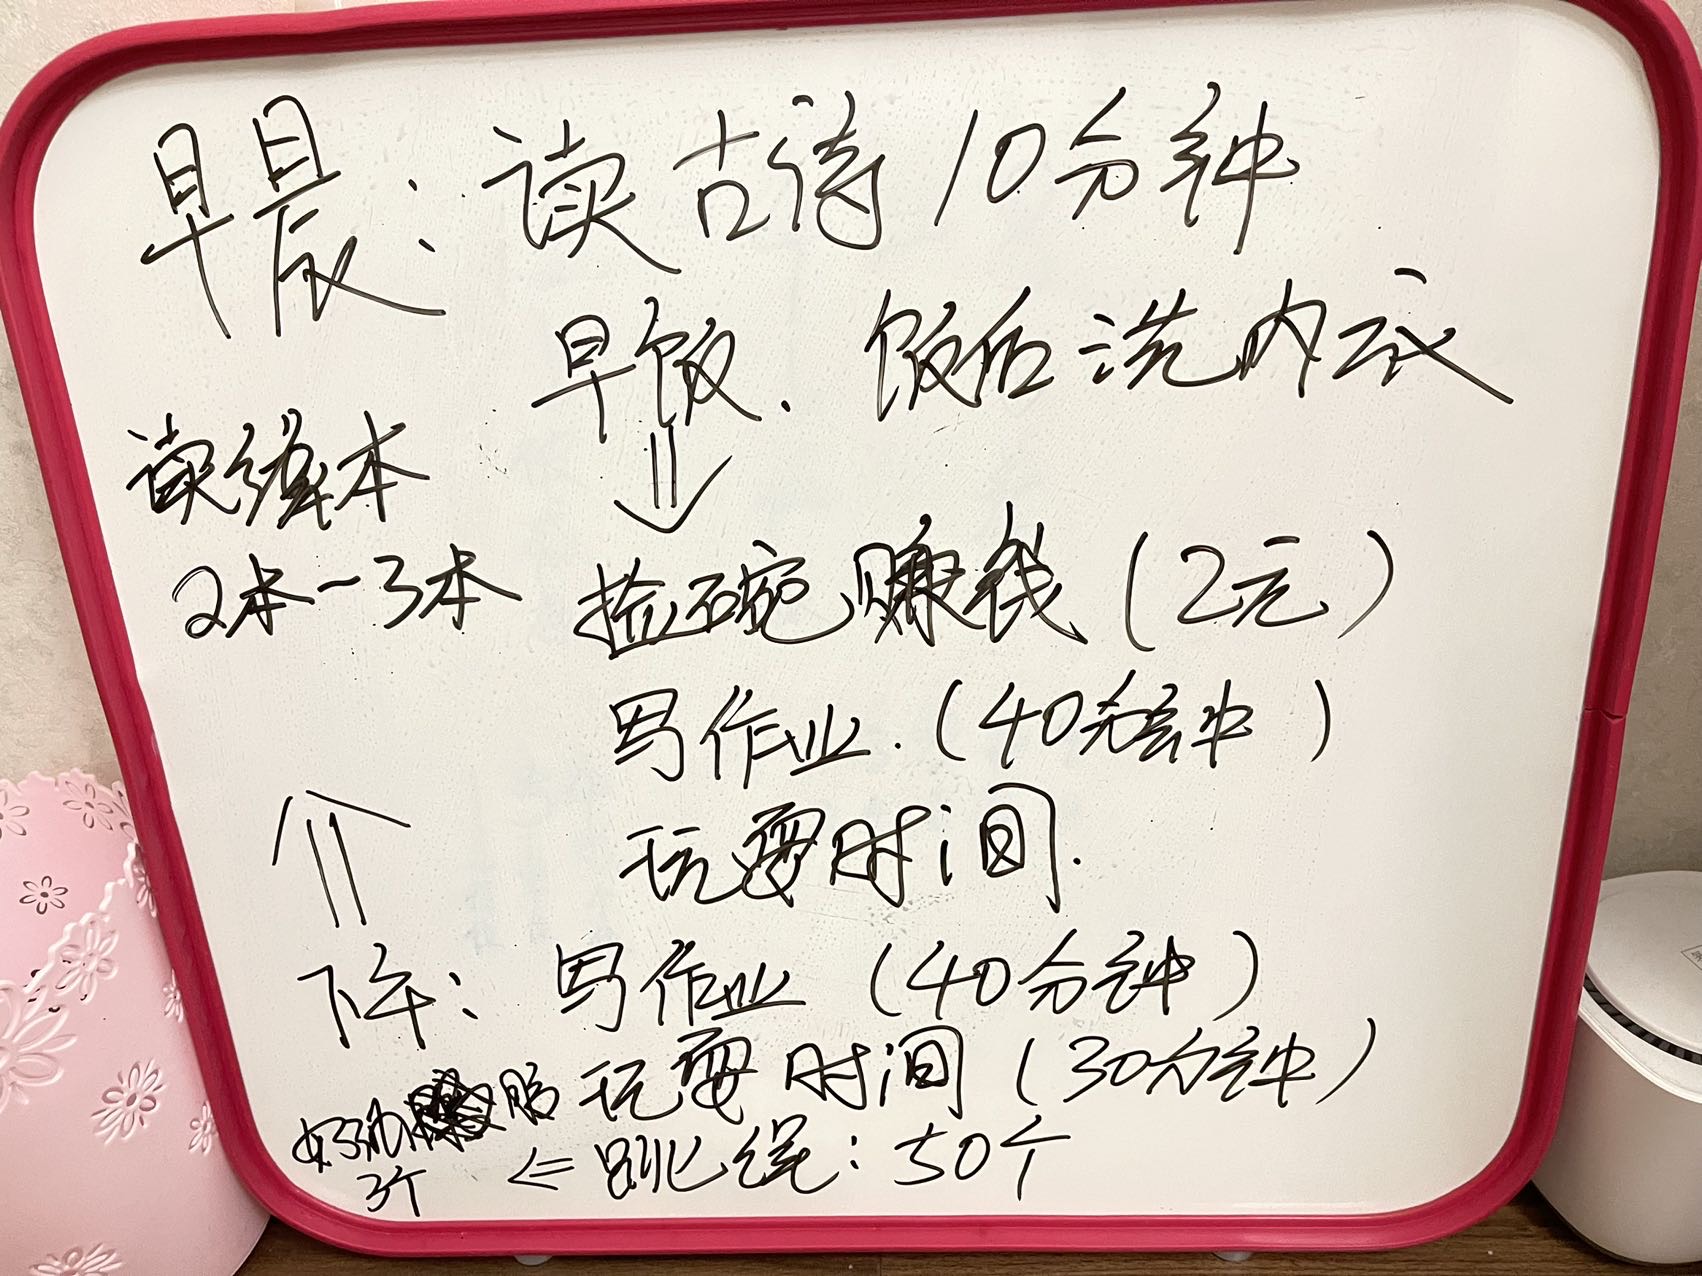 早晨：读古诗10分钟
早饭．饭后洗内衣
⇓
读绘本
2本~3本
捡碗赚钱（2元）
写作业．（40分钟）
玩耍时间．
⇑
下午：写作业（40分钟）
玩耍时间（30分钟）
3个 ⇐ 跳绳：50个